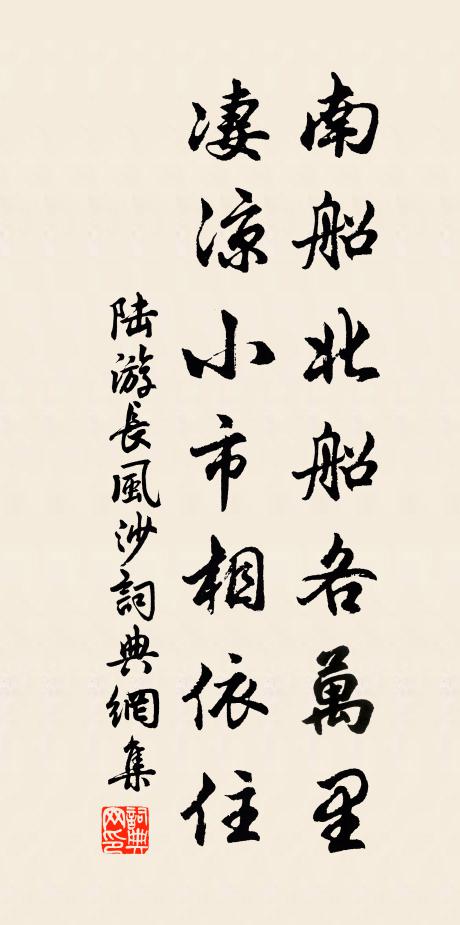 南船北船各萬里
凄涼小市相依住
陸游長風沙詞典網集
詞典網印